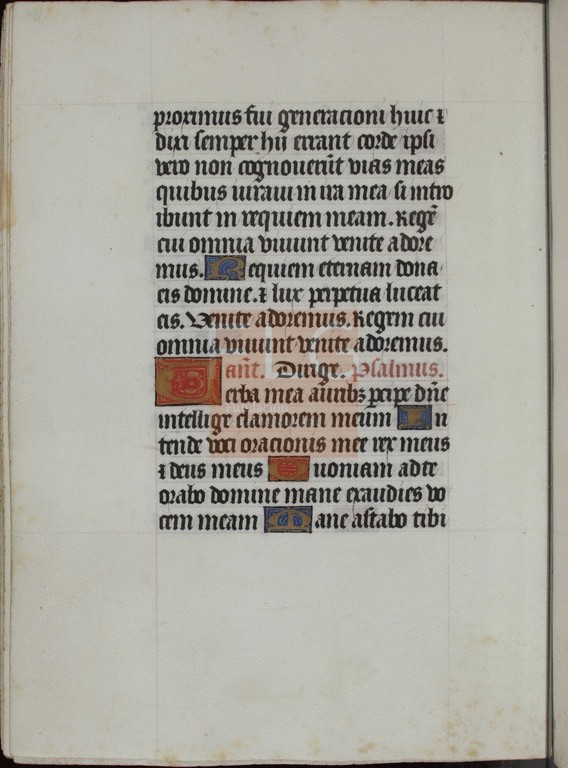 proximus fui generacioni huic ⁊
dixi semper hii errant corde ipsi
vero non cognouerūt vias meas
quibus iuraui in ira mea si intro
ibunt in requiem meam. Regē
cui omnia viuunt venite adore
mus. Requiem eternam dona
eis domine. ⁊ lux perpetua luceat
eis. Venite adoremus. Regem cui
omnia viuunt venite adoremus.
añt. Dirige. Psalmus.
Verba mea auribꝫ ꝑcipe dn̄e
intellige clamorem meum In
tende voci oracionis mee rex meus
⁊ deus meus Quoniam ad te
orabo domine mane exaudies vo
cem meam Mane astabo tibi